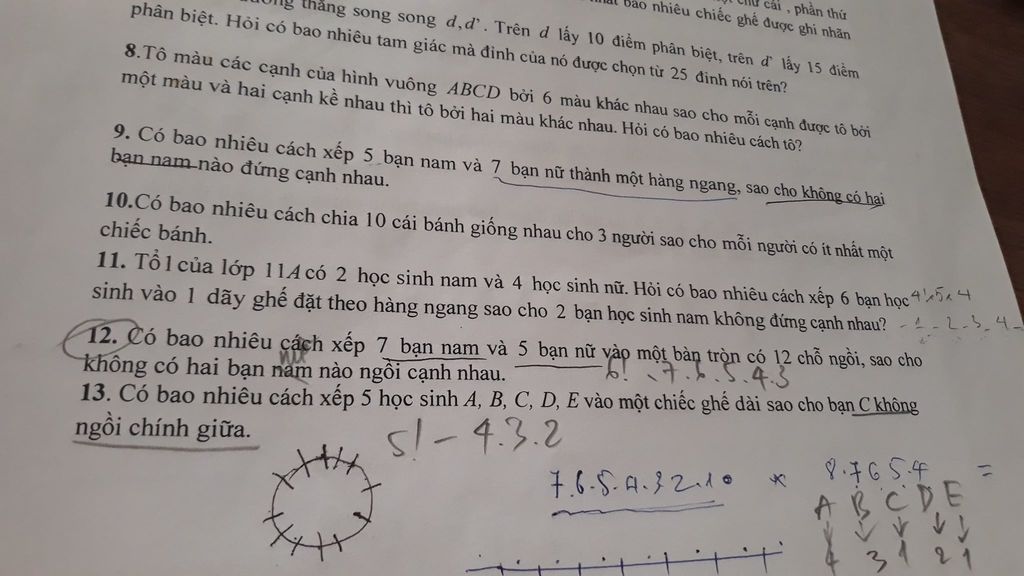 chữ cái , phần thứ
bao nhiêu chiếc ghế được ghi nhãn
thẳng song song d,d'. Trên d lấy 10 điểm phân biệt, trên d' lấy 15 điểm
phân biệt. Hỏi có bao nhiêu tam giác mà đỉnh của nó được chọn từ 25 đỉnh nói trên?
8.Tô màu các cạnh của hình vuông ABCD bởi 6 màu khác nhau sao cho mỗi cạnh được tô bởi
một màu và hai cạnh kề nhau thì tô bởi hai màu khác nhau. Hỏi có bao nhiêu cách tô?
9. Có bao nhiêu cách xếp 5 bạn nam và 7 bạn nữ thành một hàng ngang, sao cho không có hai
bạn nam nào đứng cạnh nhau.
10.Có bao nhiêu cách chia 10 cái bánh giống nhau cho 3 người sao cho mỗi người có ít nhất một
chiếc bánh.
11. Tổ 1 của lớp 11A có 2 học sinh nam và 4 học sinh nữ. Hỏi có bao nhiêu cách xếp 6 bạn học
sinh vào 1 dãy ghế đặt theo hàng ngang sao cho 2 bạn học sinh nam không đứng cạnh nhau?
- 1 - 2 - 3 - 4 -
12. Có bao nhiêu cách xếp 7 bạn nam và 5 bạn nữ vào một bàn tròn có 12 chỗ ngồi, sao cho
nữ
không có hai bạn nam nào ngồi cạnh nhau. 6! . 7.6.5.4.3
13. Có bao nhiêu cách xếp 5 học sinh A, B, C, D, E vào một chiếc ghế dài sao cho bạn C không
ngồi chính giữa.
5! - 4.3.2
7.6.5.4.3.2.1 * 8.7.6.5.4 =
A B C D E
4 3 1 2 1